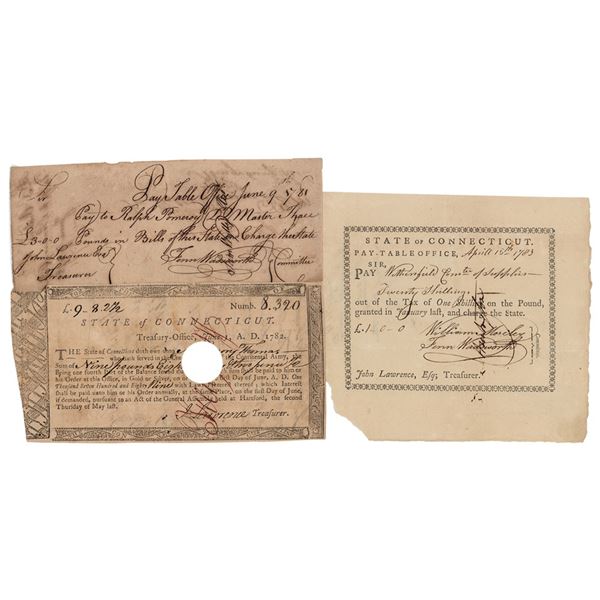 Pay Table Office June 9th
Pay to Ralph Pomeroy Master Three
£3-0-0 Pounds in Bills of this State and Charge this State
John Lawrence Esq
Treasurer
Fenn Wadsworth Committee
£.9-8.2½ Numb. 8,390
STATE of CONNECTICUT.
Treasury-Office, June 1, A. D. 1782.
THE State of Connecticut doth owe unto Thomas
who hath served in the Army, the
Sum of Nine Pounds
being one fourth Part of the Balance found due to him
his Order at this Office, in Gold or Silver, on or before the first Day of June, A. D. One
Thousand Seven Hundred and Eighty Nine with Interest thereon; which Interest
shall be paid unto him or his Order annually, at the first Day of June,
if demanded, pursuant to an Act of the General Assembly held at Hartford, the second
Thursday of May last.
Lawrence Treasurer.
STATE of CONNECTICUT.
PAY-TABLE OFFICE, April 18th 1783
SIR,
PAY Wethersfield Comtee of Supplies
Twenty Shillings
out of the Tax of One Shilling on the Pound,
granted in January last, and charge the State.
£1-0-0 William Moseley
Fenn Wadsworth
John Lawrence, Esq; Treasurer.